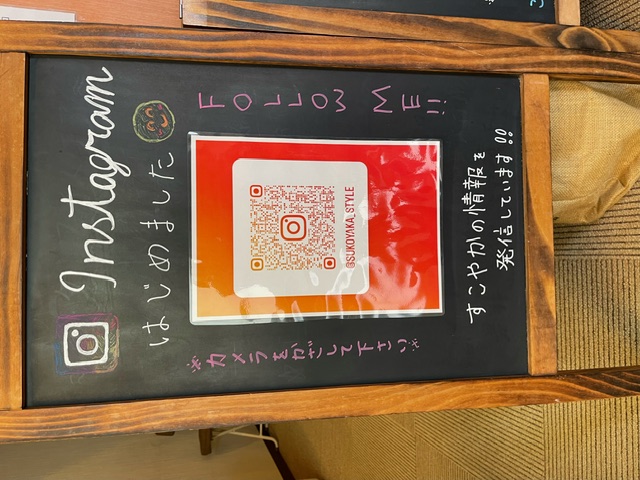 Instagram
はじめました
FOLLOW ME!!
※カメラをかざして下さい※
@SUKOYAKA_STYLE
すこやかの情報を
発信しています!!